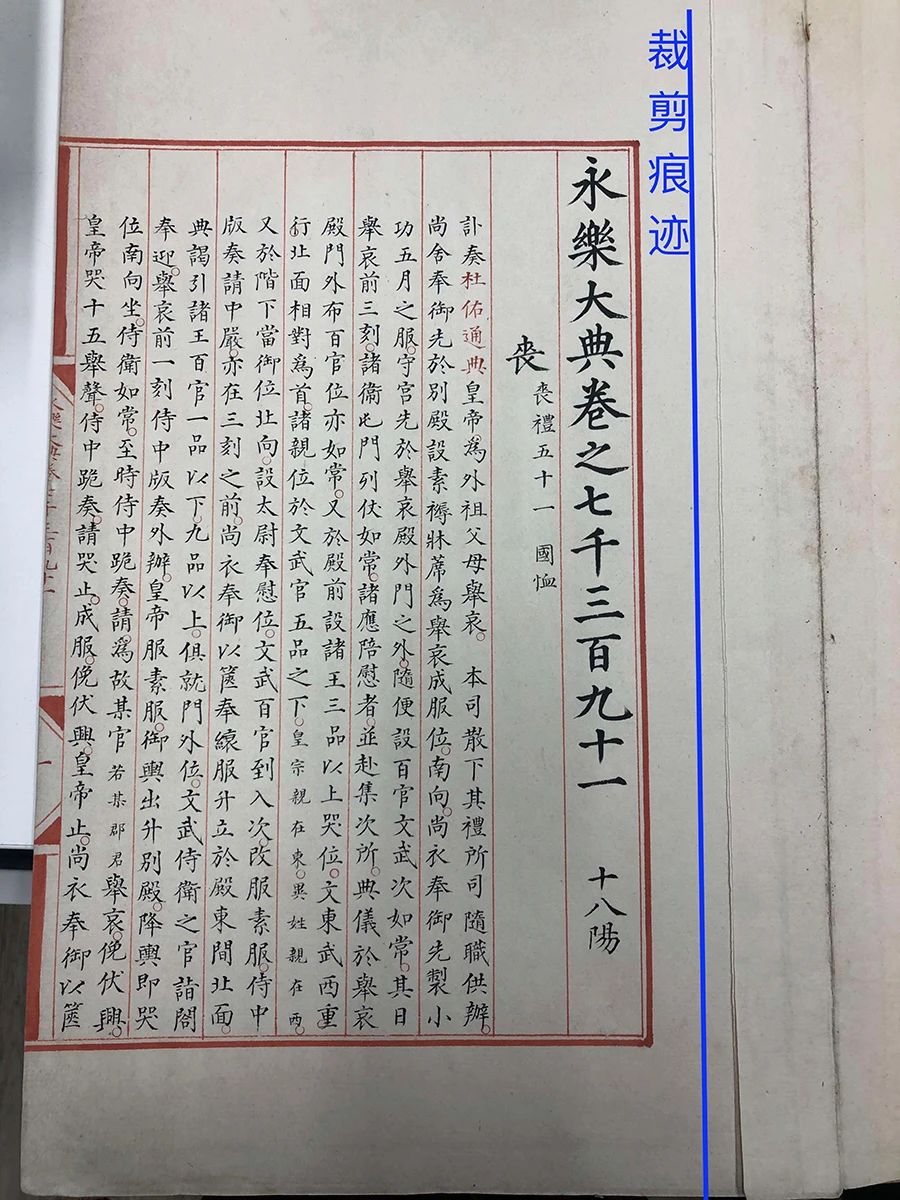 裁剪痕迹
永樂大典卷之七千三百九十一 十八陽
喪 喪禮五十一 國恤
訃奏杜佑通典皇帝爲外祖父母舉哀。本司散下其禮所司隨職供辦。
尚舍奉御先於別殿設素褥牀蓆爲舉哀成服位。南向。尚衣奉御先製小
功五月之服。守宮先於舉哀殿外門之外。隨便設百官文武次如常。其日
舉哀前三刻。諸衛屯門列仗如常。諸應陪慰者。並赴集次所。典儀於舉哀
殿門外布百官位亦如常。又於殿前設諸王三品以上哭位。文東武西重
行北面相對爲首。諸親位於文武官五品之下。皇宗親在東。異姓親在西。
又於階下當御位北向。設太尉奉慰位。文武百官到入次改服素服。侍中
版奏請中嚴。亦在三刻之前。尚衣奉御以篋奉縗服升立於殿東間北面。
典謁引諸王百官一品以下。九品以上。俱就門外位。文武侍衛之官詣閤
奉迎。舉哀前一刻侍中版奏外辦。皇帝服素服。御輿出升別殿。降輿即哭
位南向坐。侍衛如常。至時侍中跪奏。請爲故某官若某郡君舉哀。俛伏興。
皇帝哭十五舉聲。侍中跪奏。請哭止。成服。俛伏興。皇帝止。尚衣奉御以篋